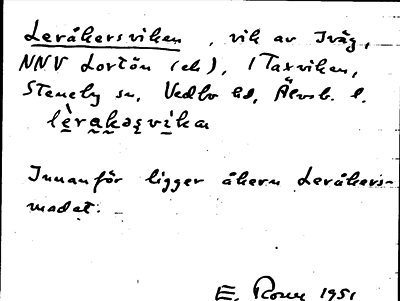 Leråkersviken, vik av Iväg,
NNV Lortön (ek), i Taxviken,
Steneby sn, Vedbo hd, Älvsb. l.
lèrakəsvikan
Innanför ligger åkern Leråkers-
madet.
E. 1951